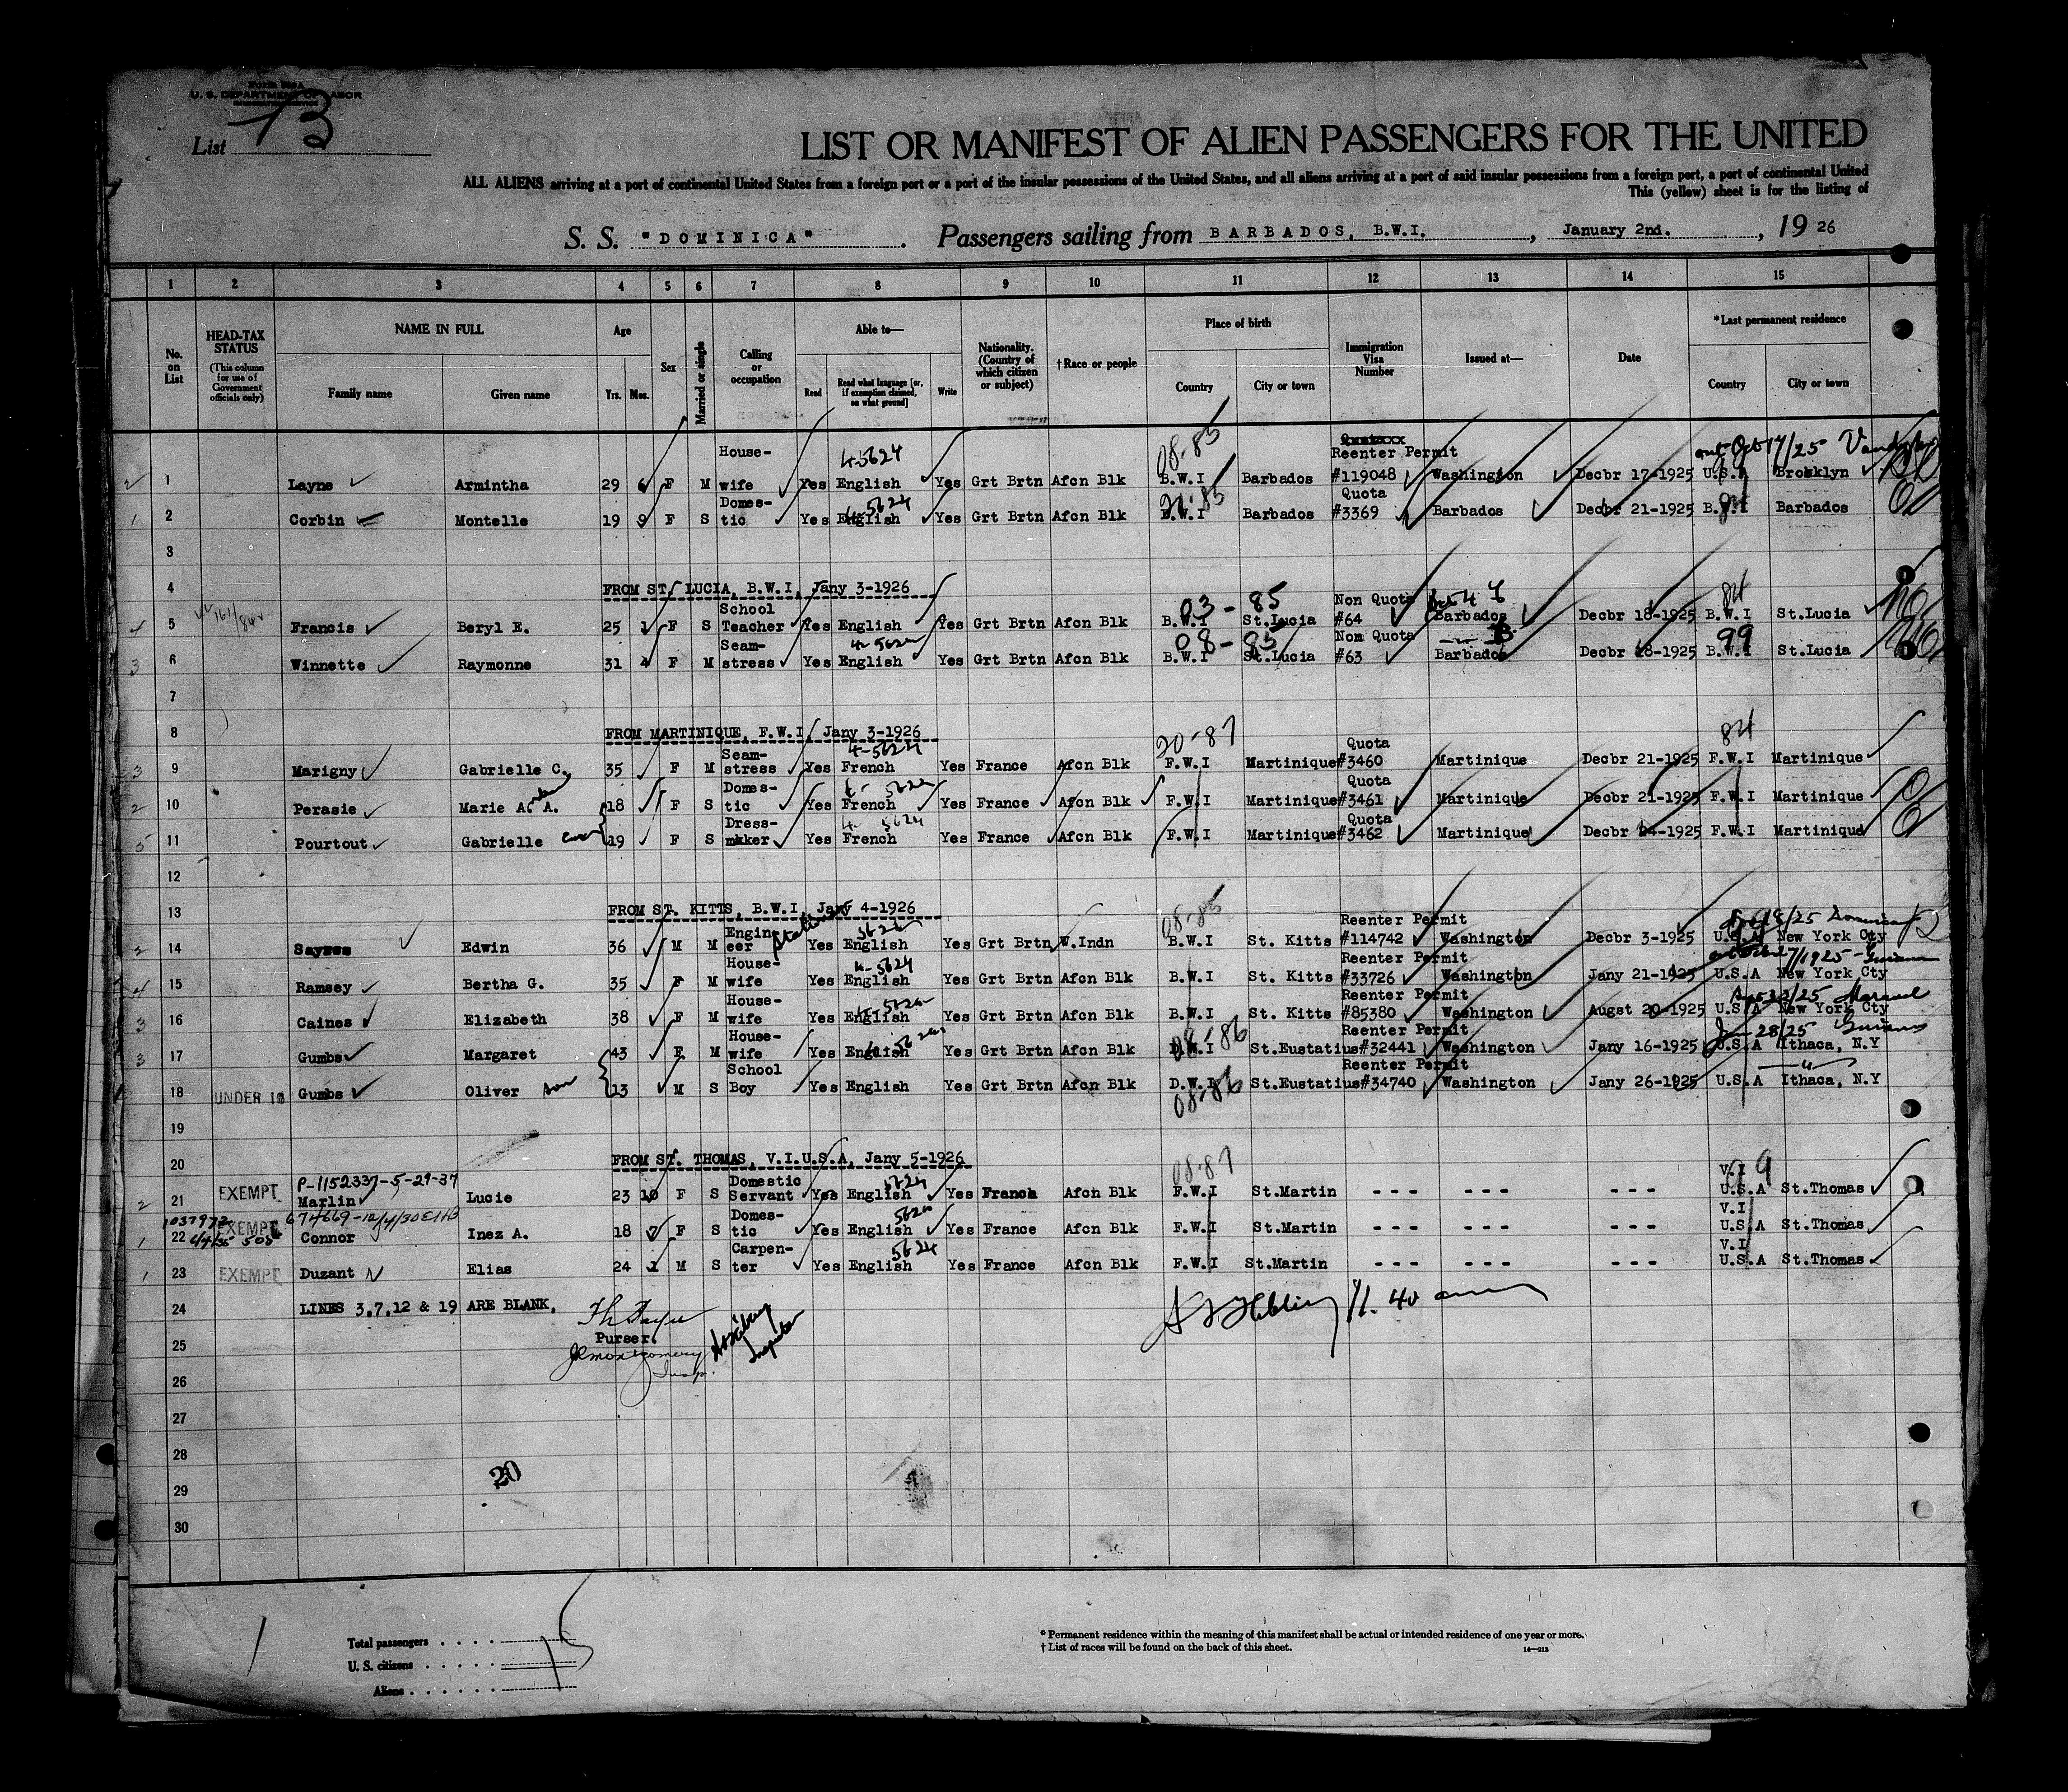 U. S. DEPARTMENT OF LABOR
List 13
LIST OR MANIFEST OF ALIEN PASSENGERS FOR THE UNITED
ALL ALIENS arriving at a port of continental United States from a foreign port or a port of the insular possessions of the United States, and all aliens arriving at a port of said insular possessions from a foreign port, a port of continental United
This (yellow) sheet is for the listing of
S. S. "DOMINICA" . Passengers sailing from BARBADOS, B.W.I. , January 2nd. , 19 26
1 2 3 4 5 6 7 8 9 10 11 12 13 14 15
No. on List
HEAD-TAX STATUS (This column for use of Government officials only)
NAME IN FULL Family name Given name
Age Yrs. Mos.
Sex
Married or single
Calling or occupation
Able to— Read Read what language [or, if exemption claimed, on what ground] Write
Nationality. (Country of which citizen or subject)
†Race or people
Place of birth Country City or town
Immigration Visa Number
Issued at—
Date
*Last permanent residence Country City or town
1 Layne Armintha 29 6 F M House-wife Yes English 4-5624 Yes Grt Brtn Afcn Blk 08-85 B.W.I Barbados Reenter Permit #119048 Washington Decbr 17-1925 U.S.A Brooklyn
2 Corbin Montelle 19 9 F S Domes-tic Yes English 4-5624 Yes Grt Brtn Afcn Blk B.W.I Barbados Quota #3369 Barbados Decbr 21-1925 B.W.I Barbados
3
4 FROM ST. LUCIA, B.W.I, Jany 3-1926
5 Francis Beryl E. 25 1 F S School Teacher Yes English Yes Grt Brtn Afcn Blk 03-85 B.W.I St.Lucia Non Quota #64 Barbados Decbr 18-1925 84 B.W.I St.Lucia
6 Winnette Raymonne 31 4 F M Seam-stress Yes English 4-5624 Yes Grt Brtn Afcn Blk 08-85 B.W.I St.Lucia Non Quota #63 Barbados Decbr 18-1925 99 B.W.I St.Lucia
7
8 FROM MARTINIQUE, F.W.I, Jany 3-1926
9 Marigny Gabrielle C. 35 F M Seam-stress Yes French 4-5624 Yes France Afcn Blk 20-87 F.W.I Martinique Quota #3460 Martinique Decbr 21-1925 84 F.W.I Martinique
10 Perasie Marie A. A. 18 F S Domes-tic Yes French Yes France Afcn Blk F.W.I Martinique Quota #3461 Martinique Decbr 21-1925 F.W.I Martinique
11 Pourtout Gabrielle 19 F S Dress-mkker Yes French 4-5624 Yes France Afcn Blk F.W.I Martinique Quota #3462 Martinique Decbr 24-1925 F.W.I Martinique
12
13 FROM ST. KITTS, B.W.I, Jany 4-1926
14 Edwin 36 M M Engin eer Yes English Yes Grt Brtn W.Indn 08-85 B.W.I St. Kitts Reenter Permit #114742 Washington Decbr 3-1925 U.S.A New York Cty
15 Ramsey Bertha G. 35 F M House-wife Yes English 4-5624 Yes Grt Brtn Afcn Blk B.W.I St. Kitts Reenter Permit #33726 Washington Jany 21-1925 U.S.A New York Cty
16 Caines Elizabeth 38 F M House-wife Yes English Yes Grt Brtn Afcn Blk B.W.I St. Kitts Reenter Permit #85380 Washington Augst 20-1925 U.S.A New York Cty
17 Gumbs Margaret 43 F M House-wife Yes English Yes Grt Brtn Afcn Blk D.W.I St.Eustatius Reenter Permit #32441 Washington Jany 16-1925 U.S.A Ithaca, N.Y
18 UNDER 16 Gumbs Oliver son 13 M S School Boy Yes English Yes Grt Brtn Afcn Blk D.W.I 08-86 St.Eustatius Reenter Permit #34740 Washington Jany 26-1925 U.S.A Ithaca, N.Y
19
20 FROM ST. THOMAS, V.I.U.S.A, Jany 5-1926
P-1152337-5-29-37
21 EXEMPT Marlin Lucie 23 10 F S Domestic Servant Yes English 5624 Yes France Afcn Blk 08-87 F.W.I St.Martin - - - - - - - - - V.I U.S.A St.Thomas
22 EXEMPT Connor Inez A. 18 7 F S Domes-tic Yes English 5624 Yes France Afcn Blk F.W.I St.Martin - - - - - - - - - V.I U.S.A St.Thomas
23 EXEMPT Duzant Elias 24 1 M S Carpen-ter Yes English 5624 Yes France Afcn Blk F.W.I St.Martin - - - - - - - - - V.I U.S.A St.Thomas
24 LINES 3,7,12 & 19 ARE BLANK.
25 Purser.
26
27
28
29 20
30
Total passengers
U. S. citizens
Aliens
15
* Permanent residence within the meaning of this manifest shall be actual or intended residence of one year or more.
† List of races will be found on the back of this sheet.
14—213